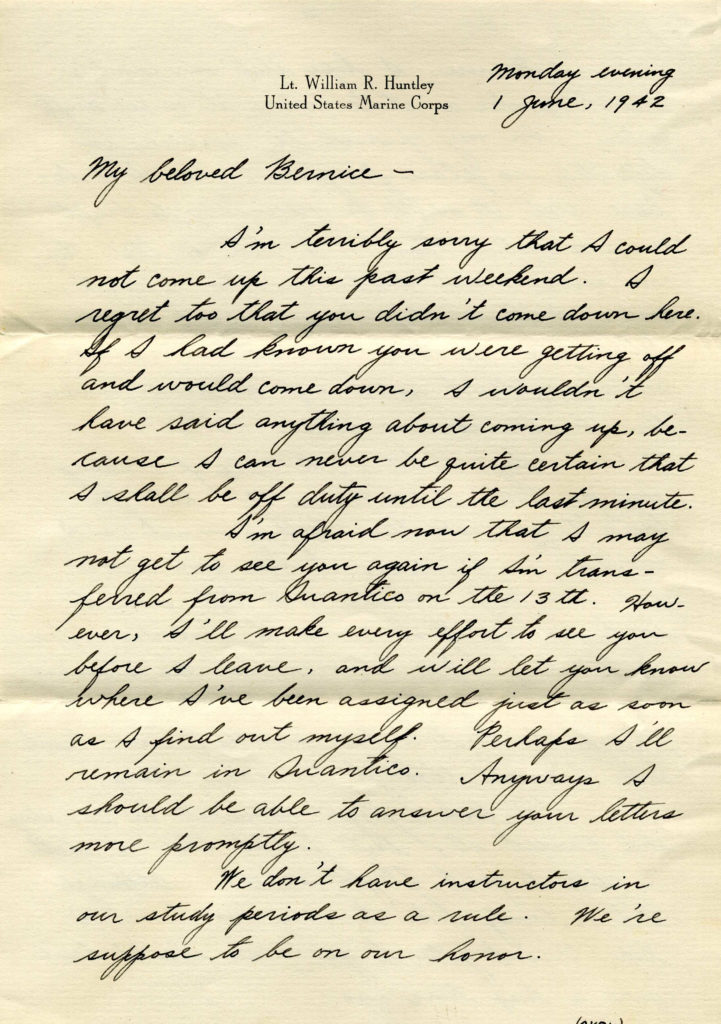 Lt. William R. Huntley
United States Marine Corps
Monday evening
1 June, 1942
My beloved Bernice —
I'm terribly sorry that I could
not come up this past weekend. I
regret too that you didn't come down here.
If I had known you were getting off
and would come down, I wouldn't
have said anything about coming up, be-
cause I can never be quite certain that
I shall be off duty until the last minute.
I'm afraid now that I may
not get to see you again if I'm trans-
ferred from Quantico on the 13th. How-
ever, I'll make every effort to see you
before I leave, and will let you know
where I've been assigned just as soon
as I find out myself. Perhaps I'll
remain in Quantico. Anyways I
should be able to answer your letters
more promptly.
We don't have instructors in
our study periods as a rule. We're
suppose to be on our honor.